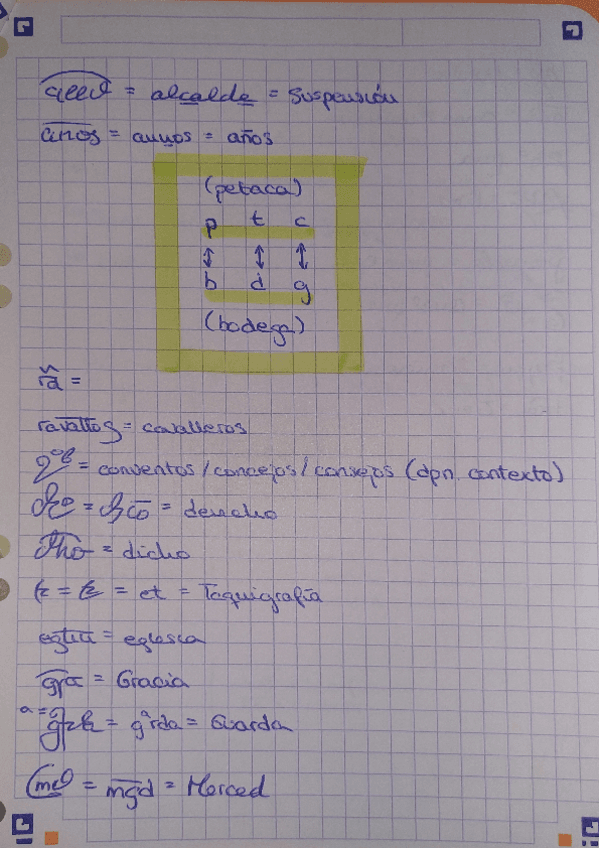 = alcalde = Suspensión
anos = annos = años
(petaca)
p t c
↕ ↕ ↕
b d g
(bodega)
=
cavallos = cavalleros
= conventos / concejos / consejos (dpn. contexto)
= = derecho
dho = dicho
= = et = Taquigrafía
= eglesia
gra = Gracia
a = = gªrda = Guarda
md = mgd = Merced